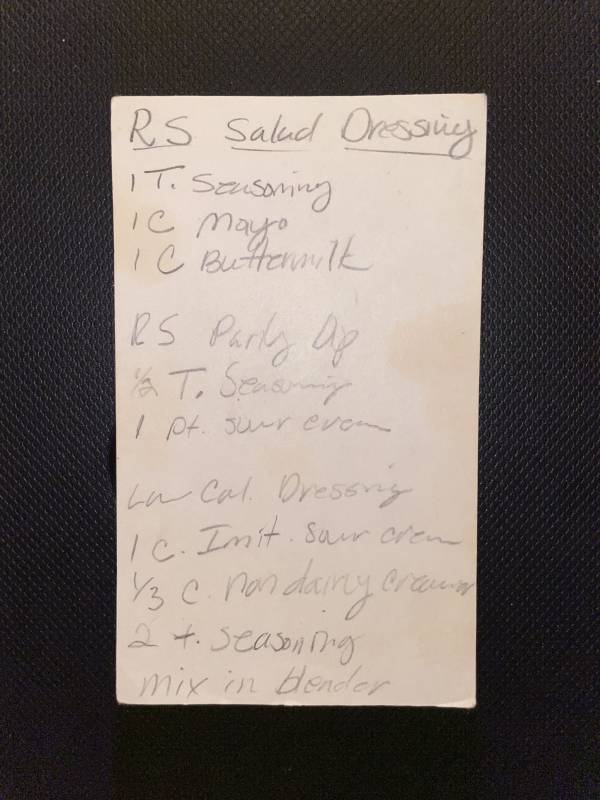 RS Salad Dressing
1 T. Seasoning
1 C Mayo
1 C Buttermilk
RS Party Dip
1/2 T. Seasoning
1 pt. sour cream
Low Cal. Dressing
1 c. Imit. sour cream
1/3 c. non dairy creamer
2 t. seasoning
mix in blender